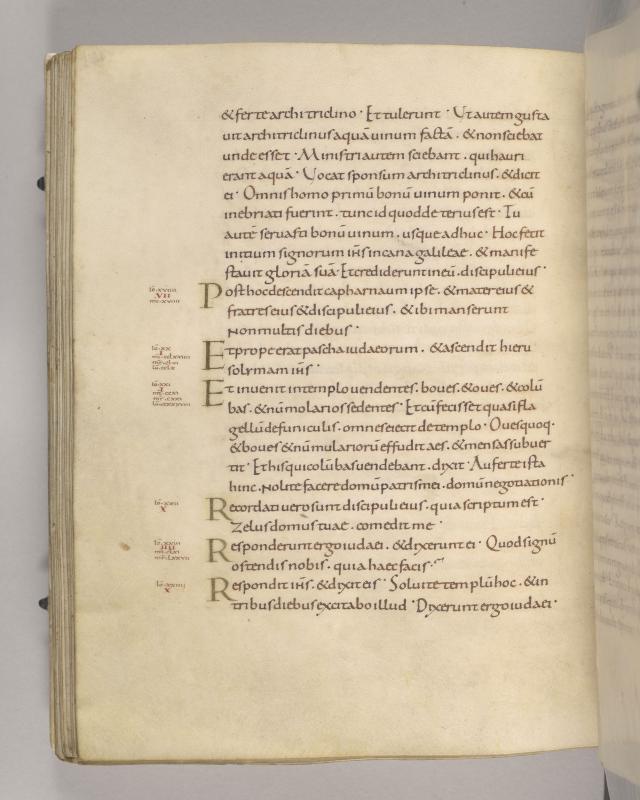 & ferte architriclino · Et tulerunt · Ut autem gusta
uit architriclinus aquā uinum factā . & non sciebat
unde esset · Ministri autem sciebant . qui hauri
erant aquā · Vocat sponsum architriclinus . & dicit
ei · Omnis homo primū bonū uinum ponit . & cū
inebriati fuerint . tunc id quod deterius est · Tu
autē seruasti bonū uinum . usque adhuc · Hoc fecit
initium signorum ih̅s in cana galileae . & manife
stauit gloriā suā · Et crediderunt in eū . discipuli eius ·
VII
Post hoc descendit capharnaum ipse . & mater eius &
fratres eius & discipuli eius . & ibi manserunt
non multis diebus ·
I
Et prope erat pascha iudaeorum . & ascendit hieru
solymam ih̅s ·
I
Et inuenit in templo uendentes . boues . & oues . & colū
bas . & nūmolarios sedentes · Et cū fecisset quasi fla
gellū de funiculis . omnes eiecit de templo · Oues quoq·
& boues & nūmulariorū effudit aes . & mensas subuer
tit · Et his qui colūbas uendebant . dixit · Auferte ista
hinc . nolite facere domū patris mei . domū negotiationis ·
X
Recordati uero sunt discipuli eius . quia scriptum est ·
Zelus domus tuae . comedit me ·
IIII
Responderunt ergo iudaei . & dixerunt ei · Quod signū
ostendis nobis . quia haec facis ·
X
Respondit ih̅s . & dixit eis · Soluite templū hoc . & in
tribus diebus excitabo illud · Dixerunt ergo iudaei ·